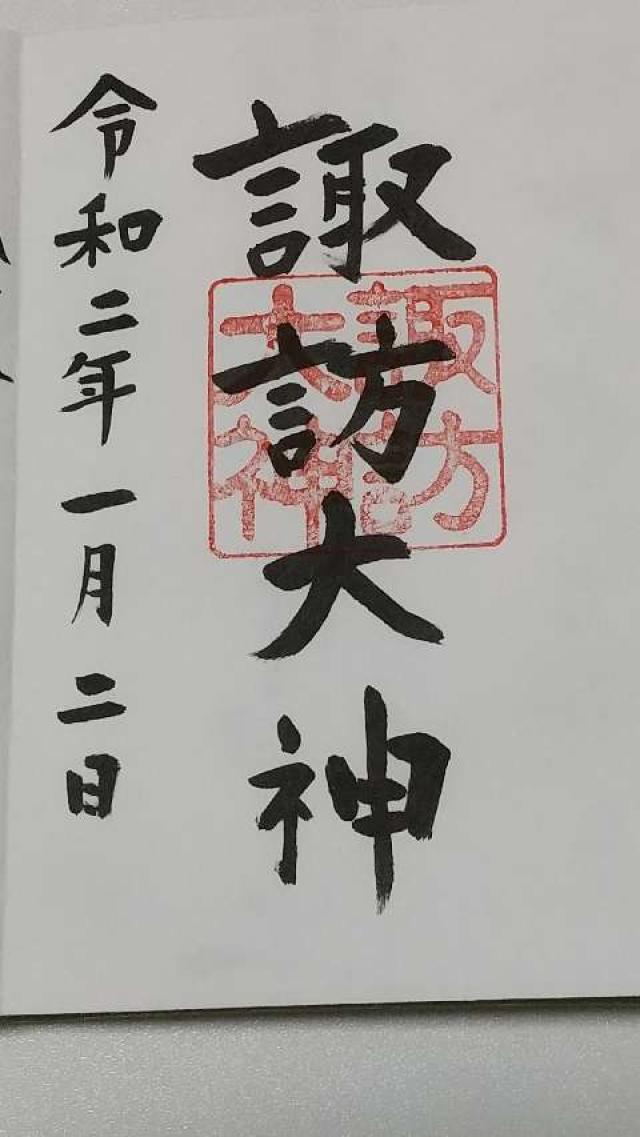 諏訪大神
諏訪
大神
令和二年一月二日